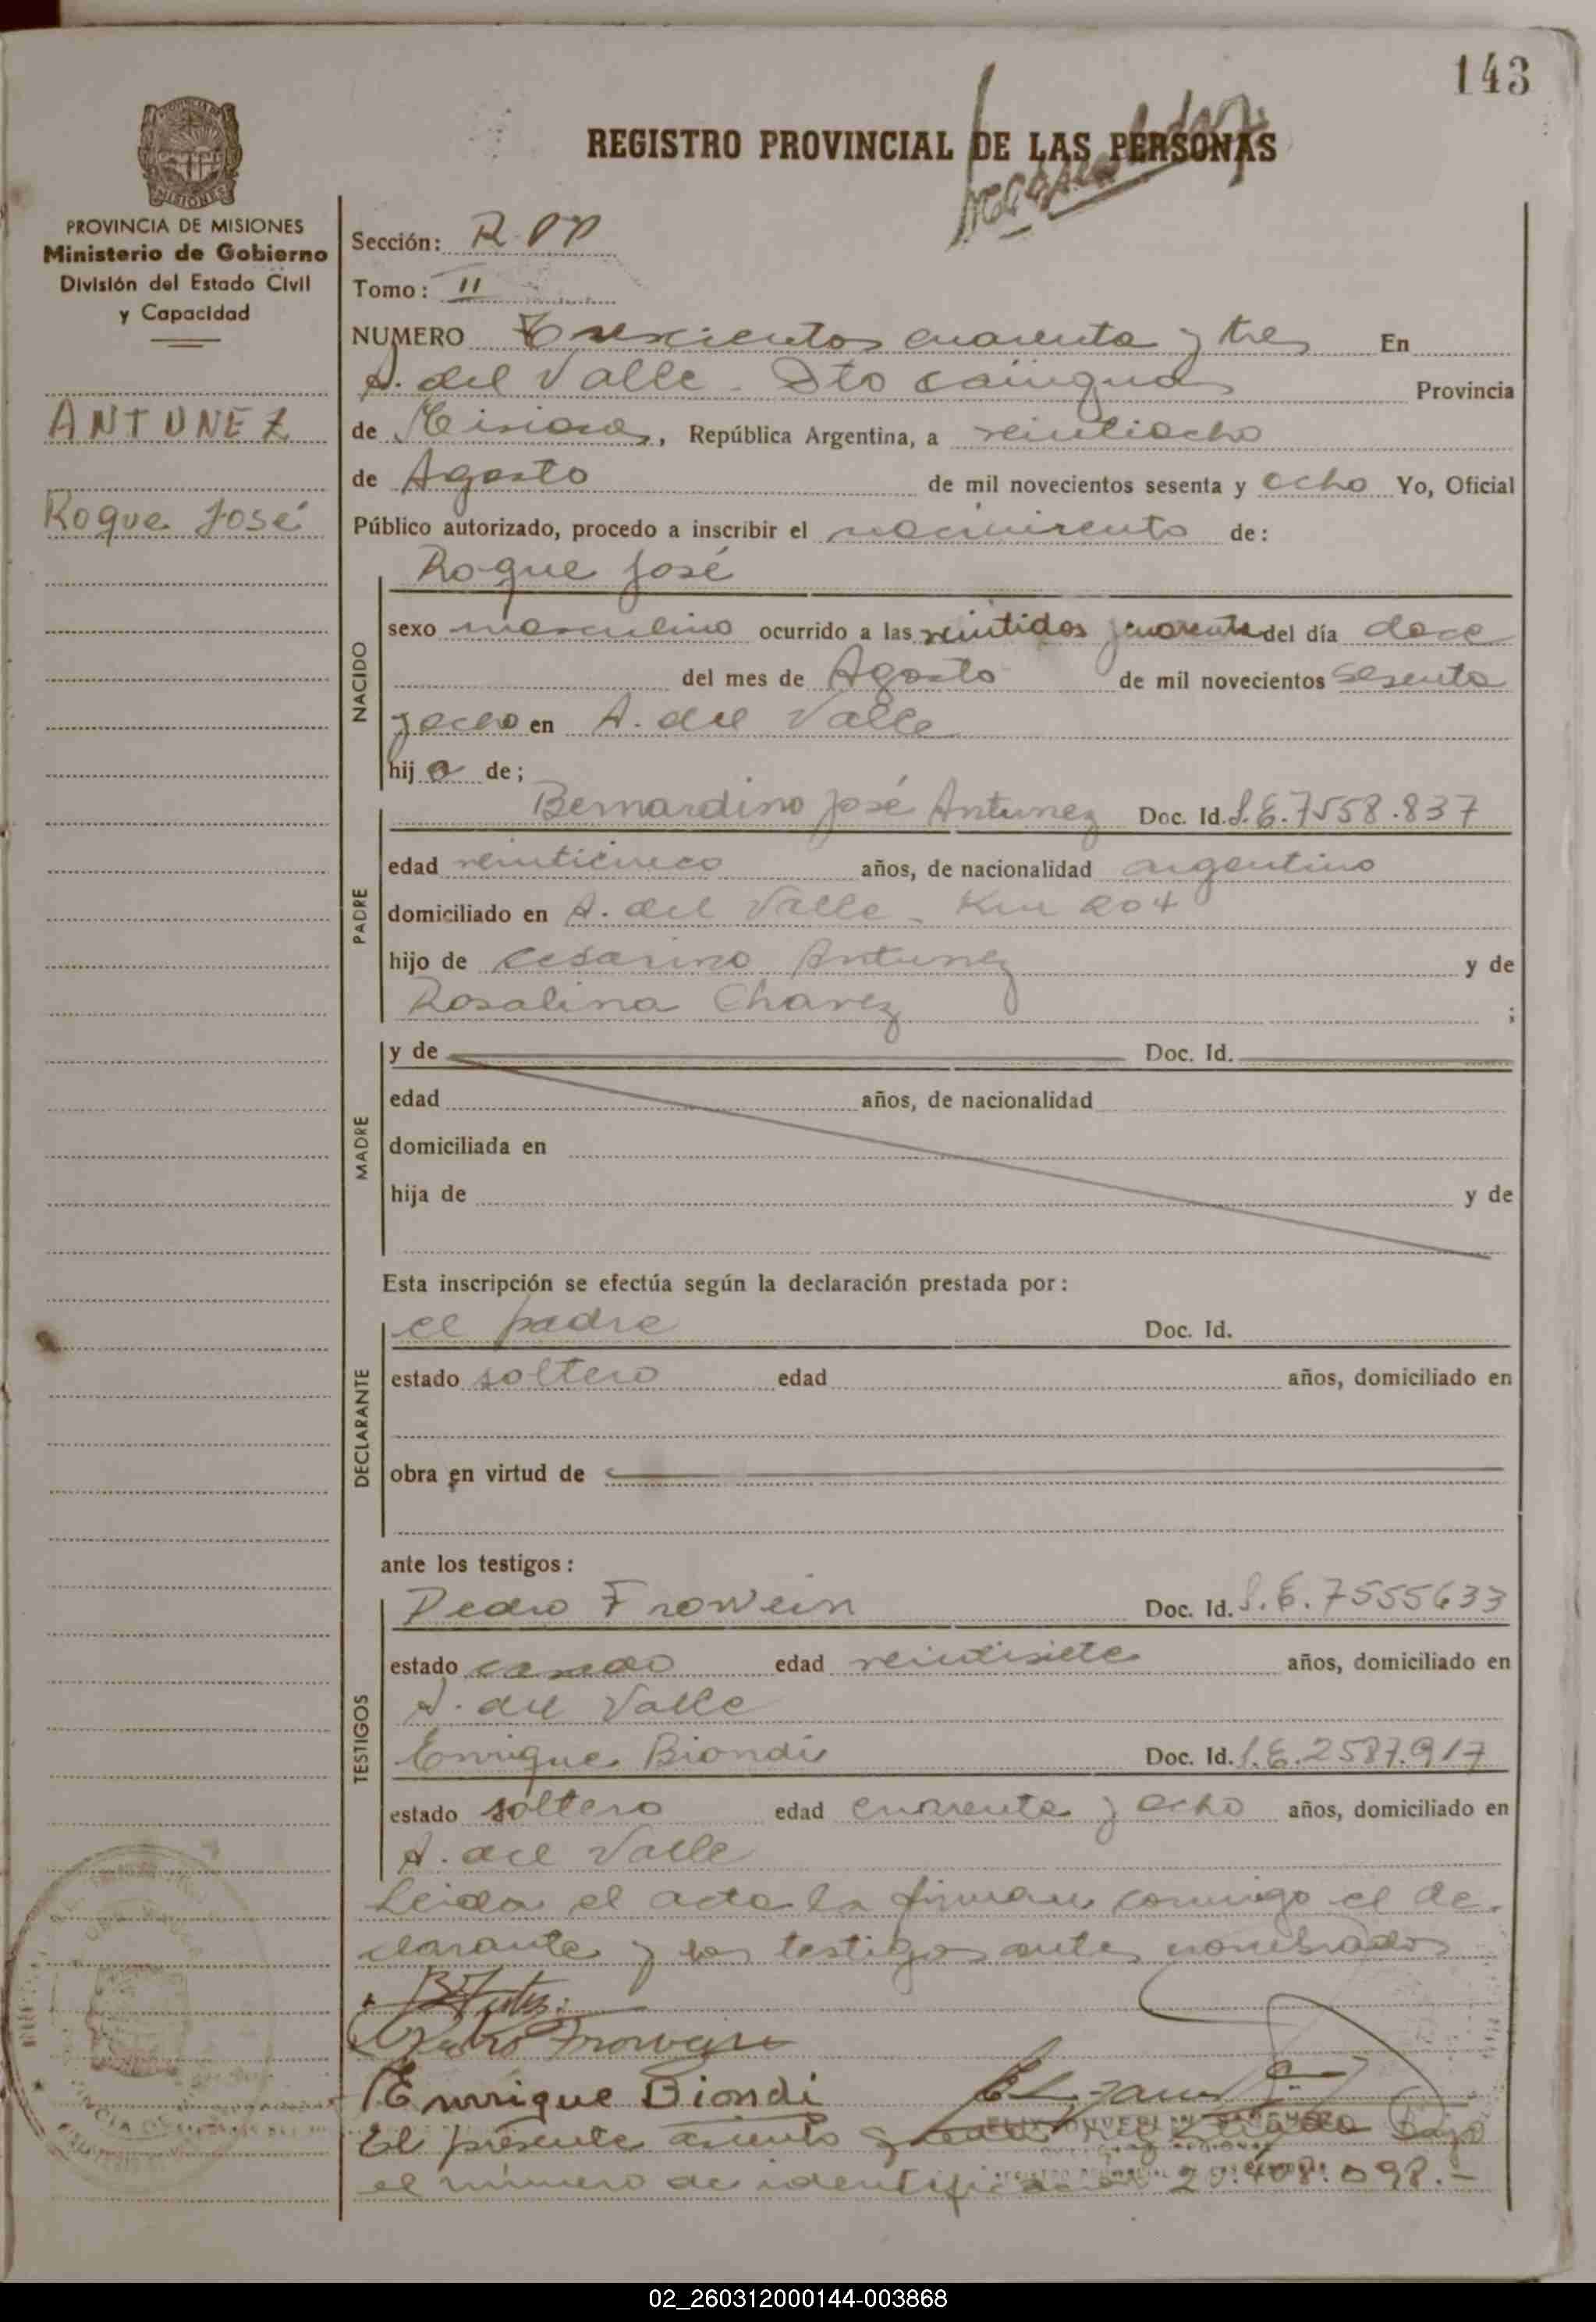 143
REGISTRO PROVINCIAL DE LAS PERSONAS
PROVINCIA DE MISIONES
Ministerio de Gobierno
División del Estado Civil
y Capacidad
ANTUNEZ
Roque José
Sección: R PP
Tomo: II
NUMERO Trescientos cuarenta y tres En
A. del Valle - Dto Cainguas Provincia
de Misiones, República Argentina, a veintiocho
de Agosto de mil novecientos sesenta y ocho Yo, Oficial
Público autorizado, procedo a inscribir el nacimiento de:
Roque José
NACIDO
sexo masculino ocurrido a las veintidos y cuarenta del día doce
del mes de Agosto de mil novecientos sesenta
y ocho en A. del Valle
hij o de;
PADRE
Bernardino José Antunez Doc. Id. L.E. 7558.837
edad veinticinco años, de nacionalidad argentino
domiciliado en A. del Valle - Km 204
hijo de Cesarino Antunez y de
Rosalina Chavez ;
MADRE
y de Doc. Id.
edad años, de nacionalidad
domiciliada en
hija de y de
Esta inscripción se efectúa según la declaración prestada por:
DECLARANTE
el padre Doc. Id.
estado soltero edad años, domiciliado en
obra en virtud de
ante los testigos:
TESTIGOS
Pedro Frowein Doc. Id. L.E. 7555633
estado casado edad veintisiete años, domiciliado en
A. del Valle
Enrique Biondi Doc. Id. L.E. 2587.917
estado soltero edad cuarenta y ocho años, domiciliado en
A. del Valle
Leida el acta la firman conmigo el de-
clarante y los testigos antes nombrados
Pedro Frowein
Enrrique Biondi
El presente asiento Bajo
el número de identificación 20.408.098.-
02_260312000144-003868